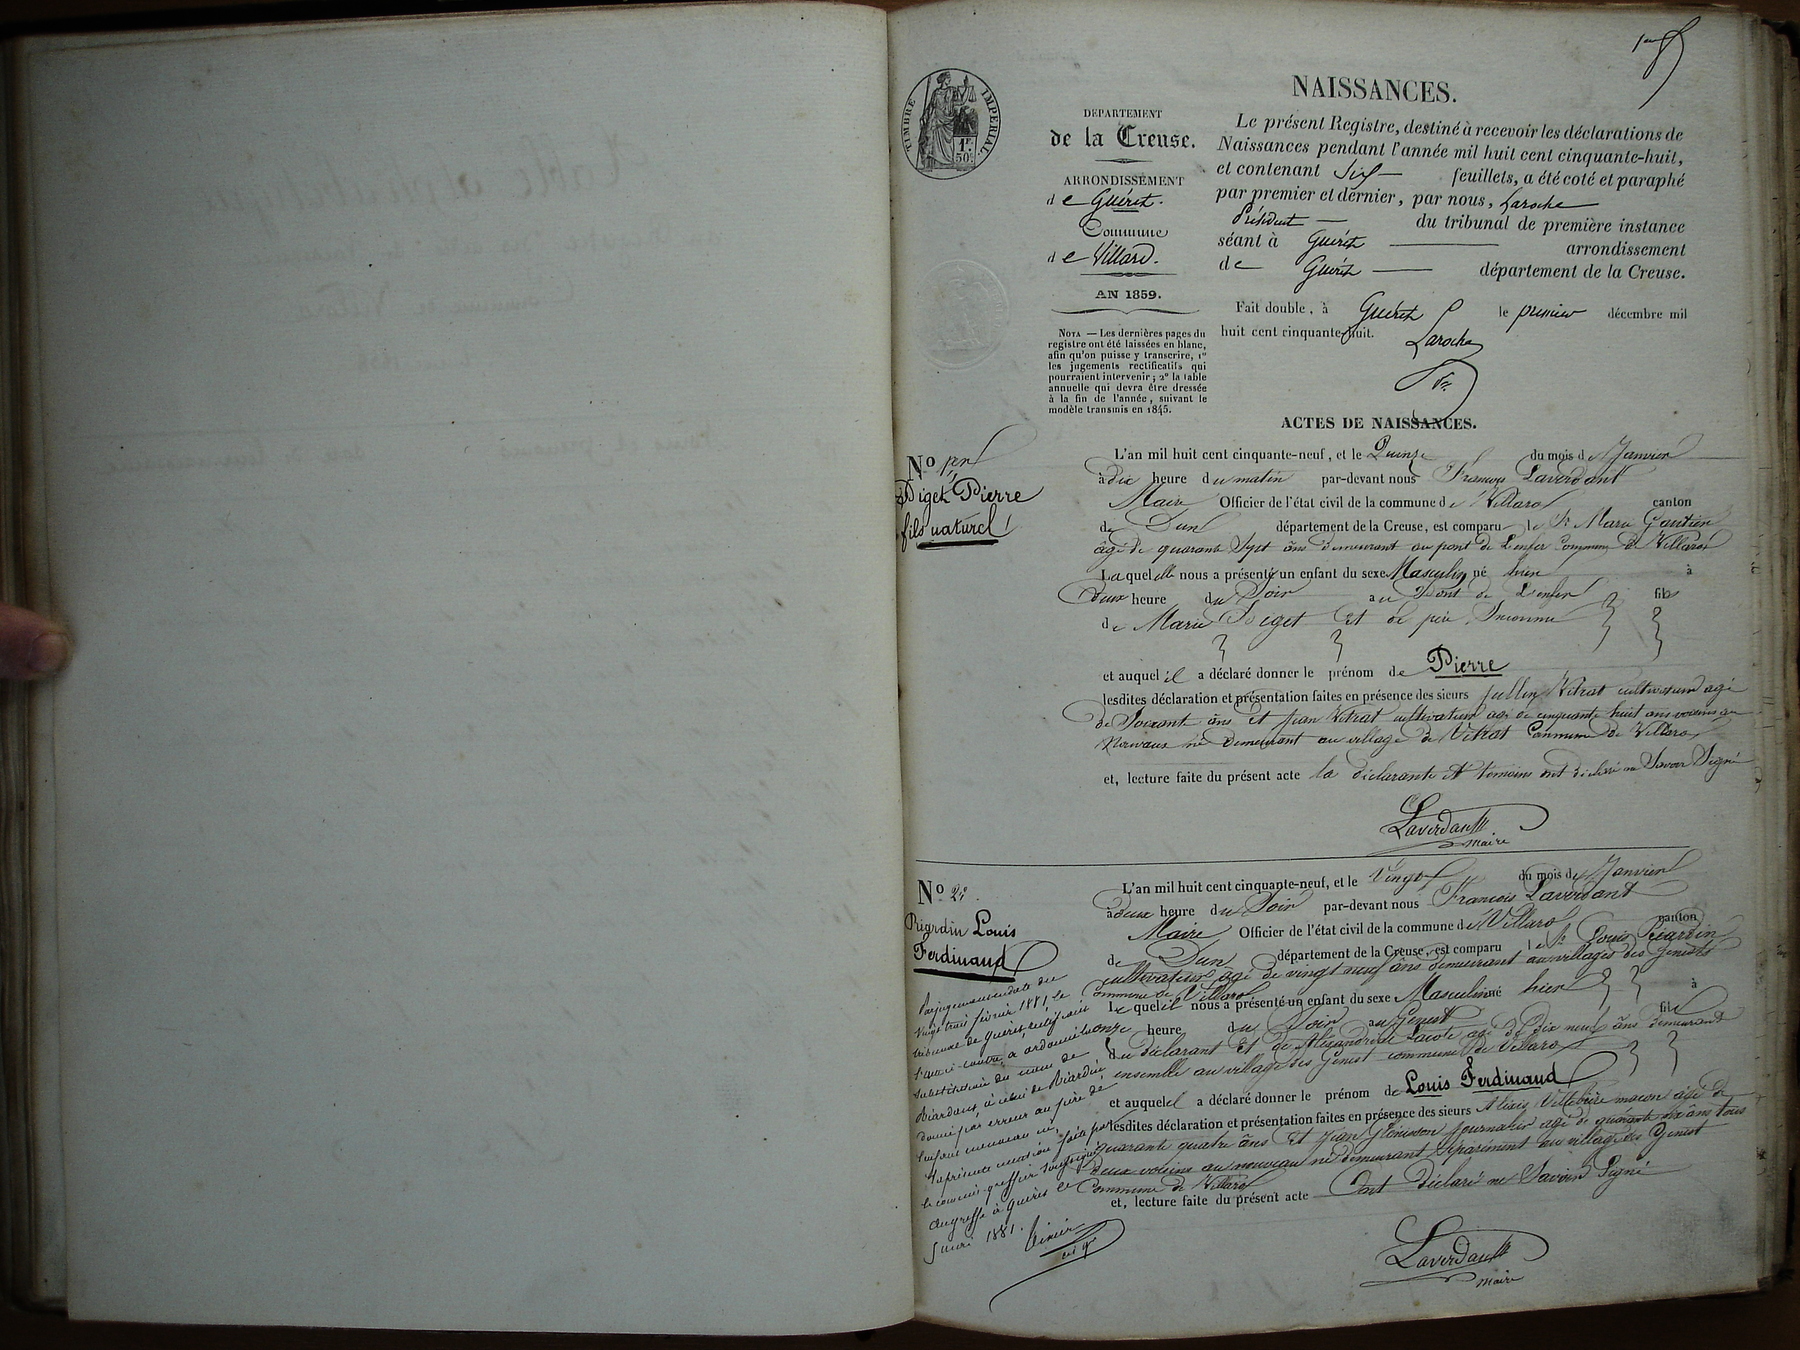 1er
TIMBRE IMPERIAL
1F.
50c
NAISSANCES.
DÉPARTEMENT
de la Creuse.
ARRONDISSEMENT
de Guéret.
Commune
de Villard.
AN 1859.
NOTA — Les dernières pages du
registre ont été laissées en blanc,
afin qu'on puisse y transcrire, 1º
les jugements rectificatifs qui
pourraient intervenir ; 2º la table
annuelle qui devra être dressée
à la fin de l'année, suivant le
modèle transmis en 1845.
Le présent Registre, destiné à recevoir les déclarations de
Naissances pendant l'année mil huit cent cinquante-huit,
et contenant Six feuillets, a été coté et paraphé
par premier et dernier, par nous, Laroche
Président du tribunal de première instance
séant à Guéret arrondissement
de Guéret département de la Creuse.
Fait double, à Guéret le premier décembre mil
huit cent cinquante-huit.
Laroche
ACTES DE NAISSANCES.
No 1er
Piget Pierre
fils naturel
L'an mil huit cent cinquante-neuf, et le Quinze du mois de Janvier
à dix heure du matin par-devant nous François Laverdant
Maire Officier de l'état civil de la commune de Villard canton
de Dun département de la Creuse, est comparu le Sr Marie Gautier
âgé de quarante Sept ans demeurant au pont de L'enfer Commune de Villard
Laquelle nous a présenté un enfant du sexe Masculin né hier à
deux heure du Soir au Pont de L'enfer fils
de Marie Piget Et de père Inconnu
et auquel il a déclaré donner le prénom de Pierre
lesdites déclaration et présentation faites en présence des sieurs Jullien Vitrat cultivateur agé
de Soixant ans Et Jean Vitrat cultivateur agé de cinquante huit ans voisins au
Nouveau né demeurant au village de Vitrat Commune de Villard
et, lecture faite du présent acte la déclarante Et témoins ont déclaré ne Savoir Signé
Laverdant
maire
No 2e
Priardin Louis
Ferdinand
L'an mil huit cent cinquante-neuf, et le Vingt du mois de Janvier
à deux heure du Soir par-devant nous François Laverdant
Maire Officier de l'état civil de la commune de Villard canton
de Dun département de la Creuse, est comparu le Sr Louis Riardin
cultivateur agé de vingt neuf ans demeurant au villages des Genests
Commune de Villard
Lequel il nous a présenté un enfant du sexe Masculin né hier à
onze heure du Soir au Genest fils
du déclarant Et de Alexandrine Lacote agé de dix neuf ans demeurant
ensemble au village des Genest commune de Villard
et auquel il a déclaré donner le prénom de Louis Ferdinand
lesdites déclaration et présentation faites en présence des sieurs Alixis Villebrire macon agé de
quarante quatre ans Et Jean Glénisson Journalier agé de quarante six ans tous
deux voisins au nouveau né demeurant Séparément au village des Genest
Commune de Villard
et, lecture faite du présent acte Ont déclaré ne Savoir Signé
Laverdant
maire
Par jugement en date du
vingt trois février 1881, le
tribunal de Guéret, rectifiant
l'acte ci-contre, a ordonné la
substitution du nom de
Riardant, à celui de Riardin
donné par erreur au père de
l'enfant nouveau né,
La présente mention faite par
le commis-greffier soussigné
au greffe à Guéret le
5 avri 1881.